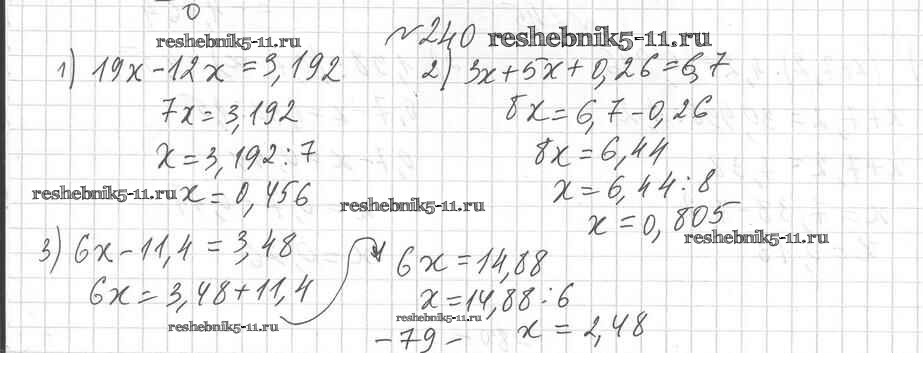 0
reshebnik5-11.ru
№240 reshebnik5-11.ru
1) 19x-12x=3,192
7x=3,192
x=3,192:7
reshebnik5-11.ru x=0,456
2) 3x+5x+0,26=6,7
8x=6,7-0,26
8x=6,44
x=6,44:8
x=0,805
reshebnik5-11.ru
reshebnik5-11.ru
3) 6x-11,4=3,48
6x=3,48+11,4
reshebnik5-11.ru
6x=14,88
x=14,88:6
reshebnik5-11.ru
x=2,48
-79-